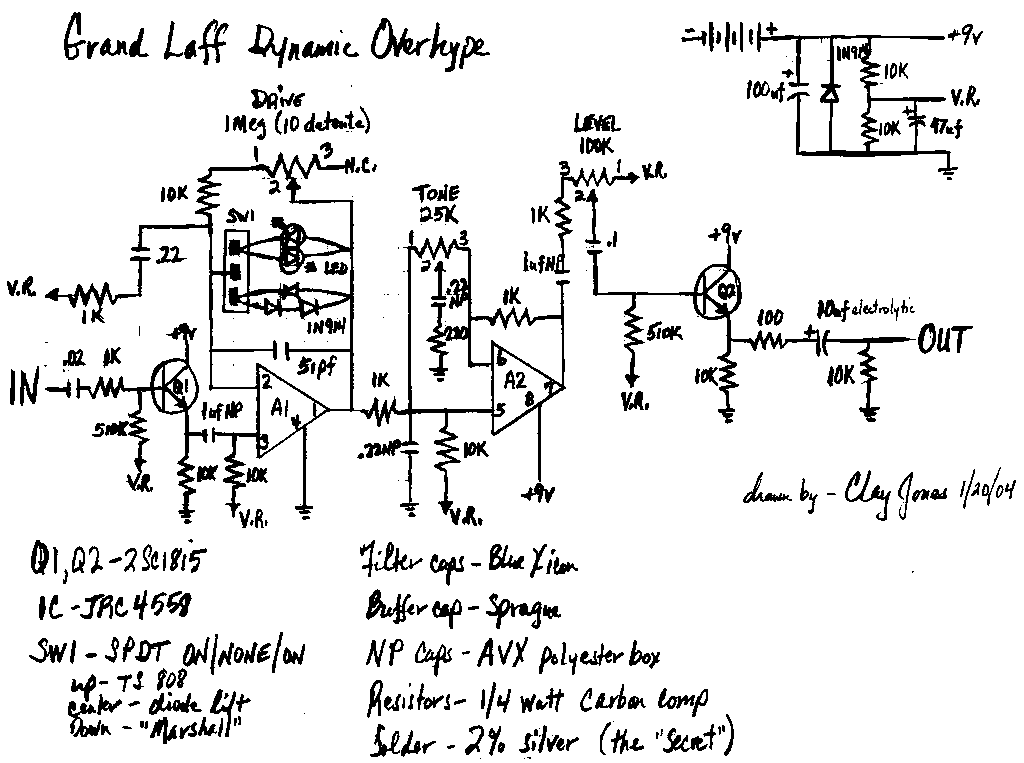 Grand Laff Dynamic Overhype
- +
+9v
100uf
+
1N914
10K
V.R.
10K
+
47uf
DRIVE
1Meg (10 detente)
1
3
N.C.
2
10K
SW1
LED
1N914
.22
V.R.
1K
51pf
+9v
IN
.02
1K
Q1
510K
V.R.
1ufNP
10K
10K
V.R.
2
A1
1
4
3
TONE
25K
1
3
2
.22
NP
220
1K
1K
.22NP
10K
V.R.
6
A2
7
8
5
+9v
LEVEL
100K
3
1
V.R.
2
1K
.1
1ufNP
+9v
Q2
510K
V.R.
10K
100
+
10uf electrolytic
OUT
10K
drawn by - Clay Jones 1/20/04
Q1, Q2 - 2SC1815
IC - JRC 4558
SW1 - SPDT ON/NONE/ON
up - TS 808
center - diode lift
Down - "Marshall"
Filter caps - Blue Xicon
Buffer cap - Sprague
NP Caps - AVX polyester box
Resistors - 1/4 watt Carbon comp
Solder - 2% silver (the "Secret")